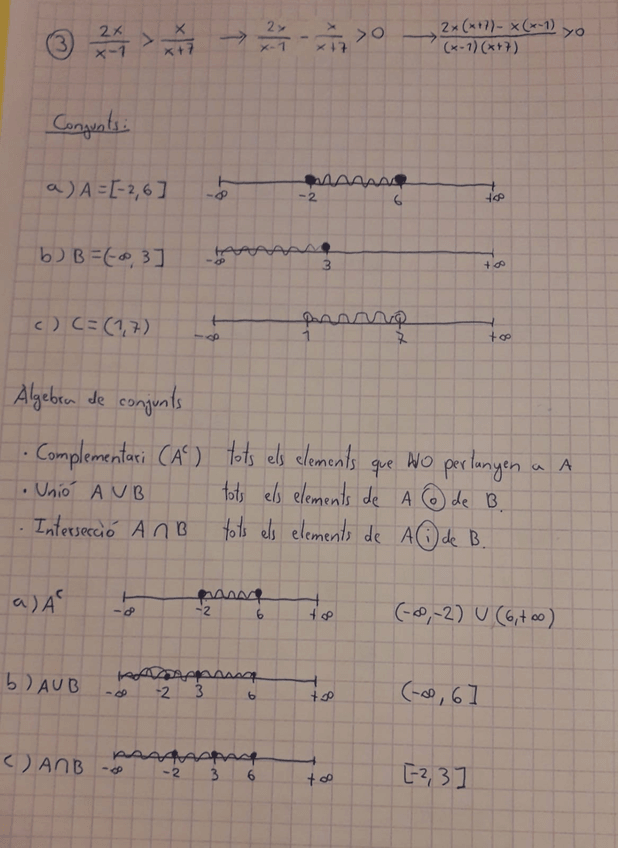 ③ 2x/(x-1) > x/(x+7) → 2x/(x-1) - x/(x+7) > 0 → (2x(x+7) - x(x-1))/((x-1)(x+7)) > 0
Conjunts:
a) A = [-2,6] -∞ -2 6 +∞
b) B = (-∞, 3] -∞ 3 +∞
c) C = (1,7) -∞ 1 7 +∞
Algebra de conjunts
· Complementari (Aᶜ) tots els elements que NO pertanyen a A
· Unió A ∪ B tots els elements de A o de B.
· Intersecció A ∩ B tots els elements de A i de B.
a) Aᶜ -∞ -2 6 +∞ (-∞,-2) ∪ (6,+∞)
b) A∪B -∞ -2 3 6 +∞ (-∞, 6]
c) A∩B -∞ -2 3 6 +∞ [-2,3]